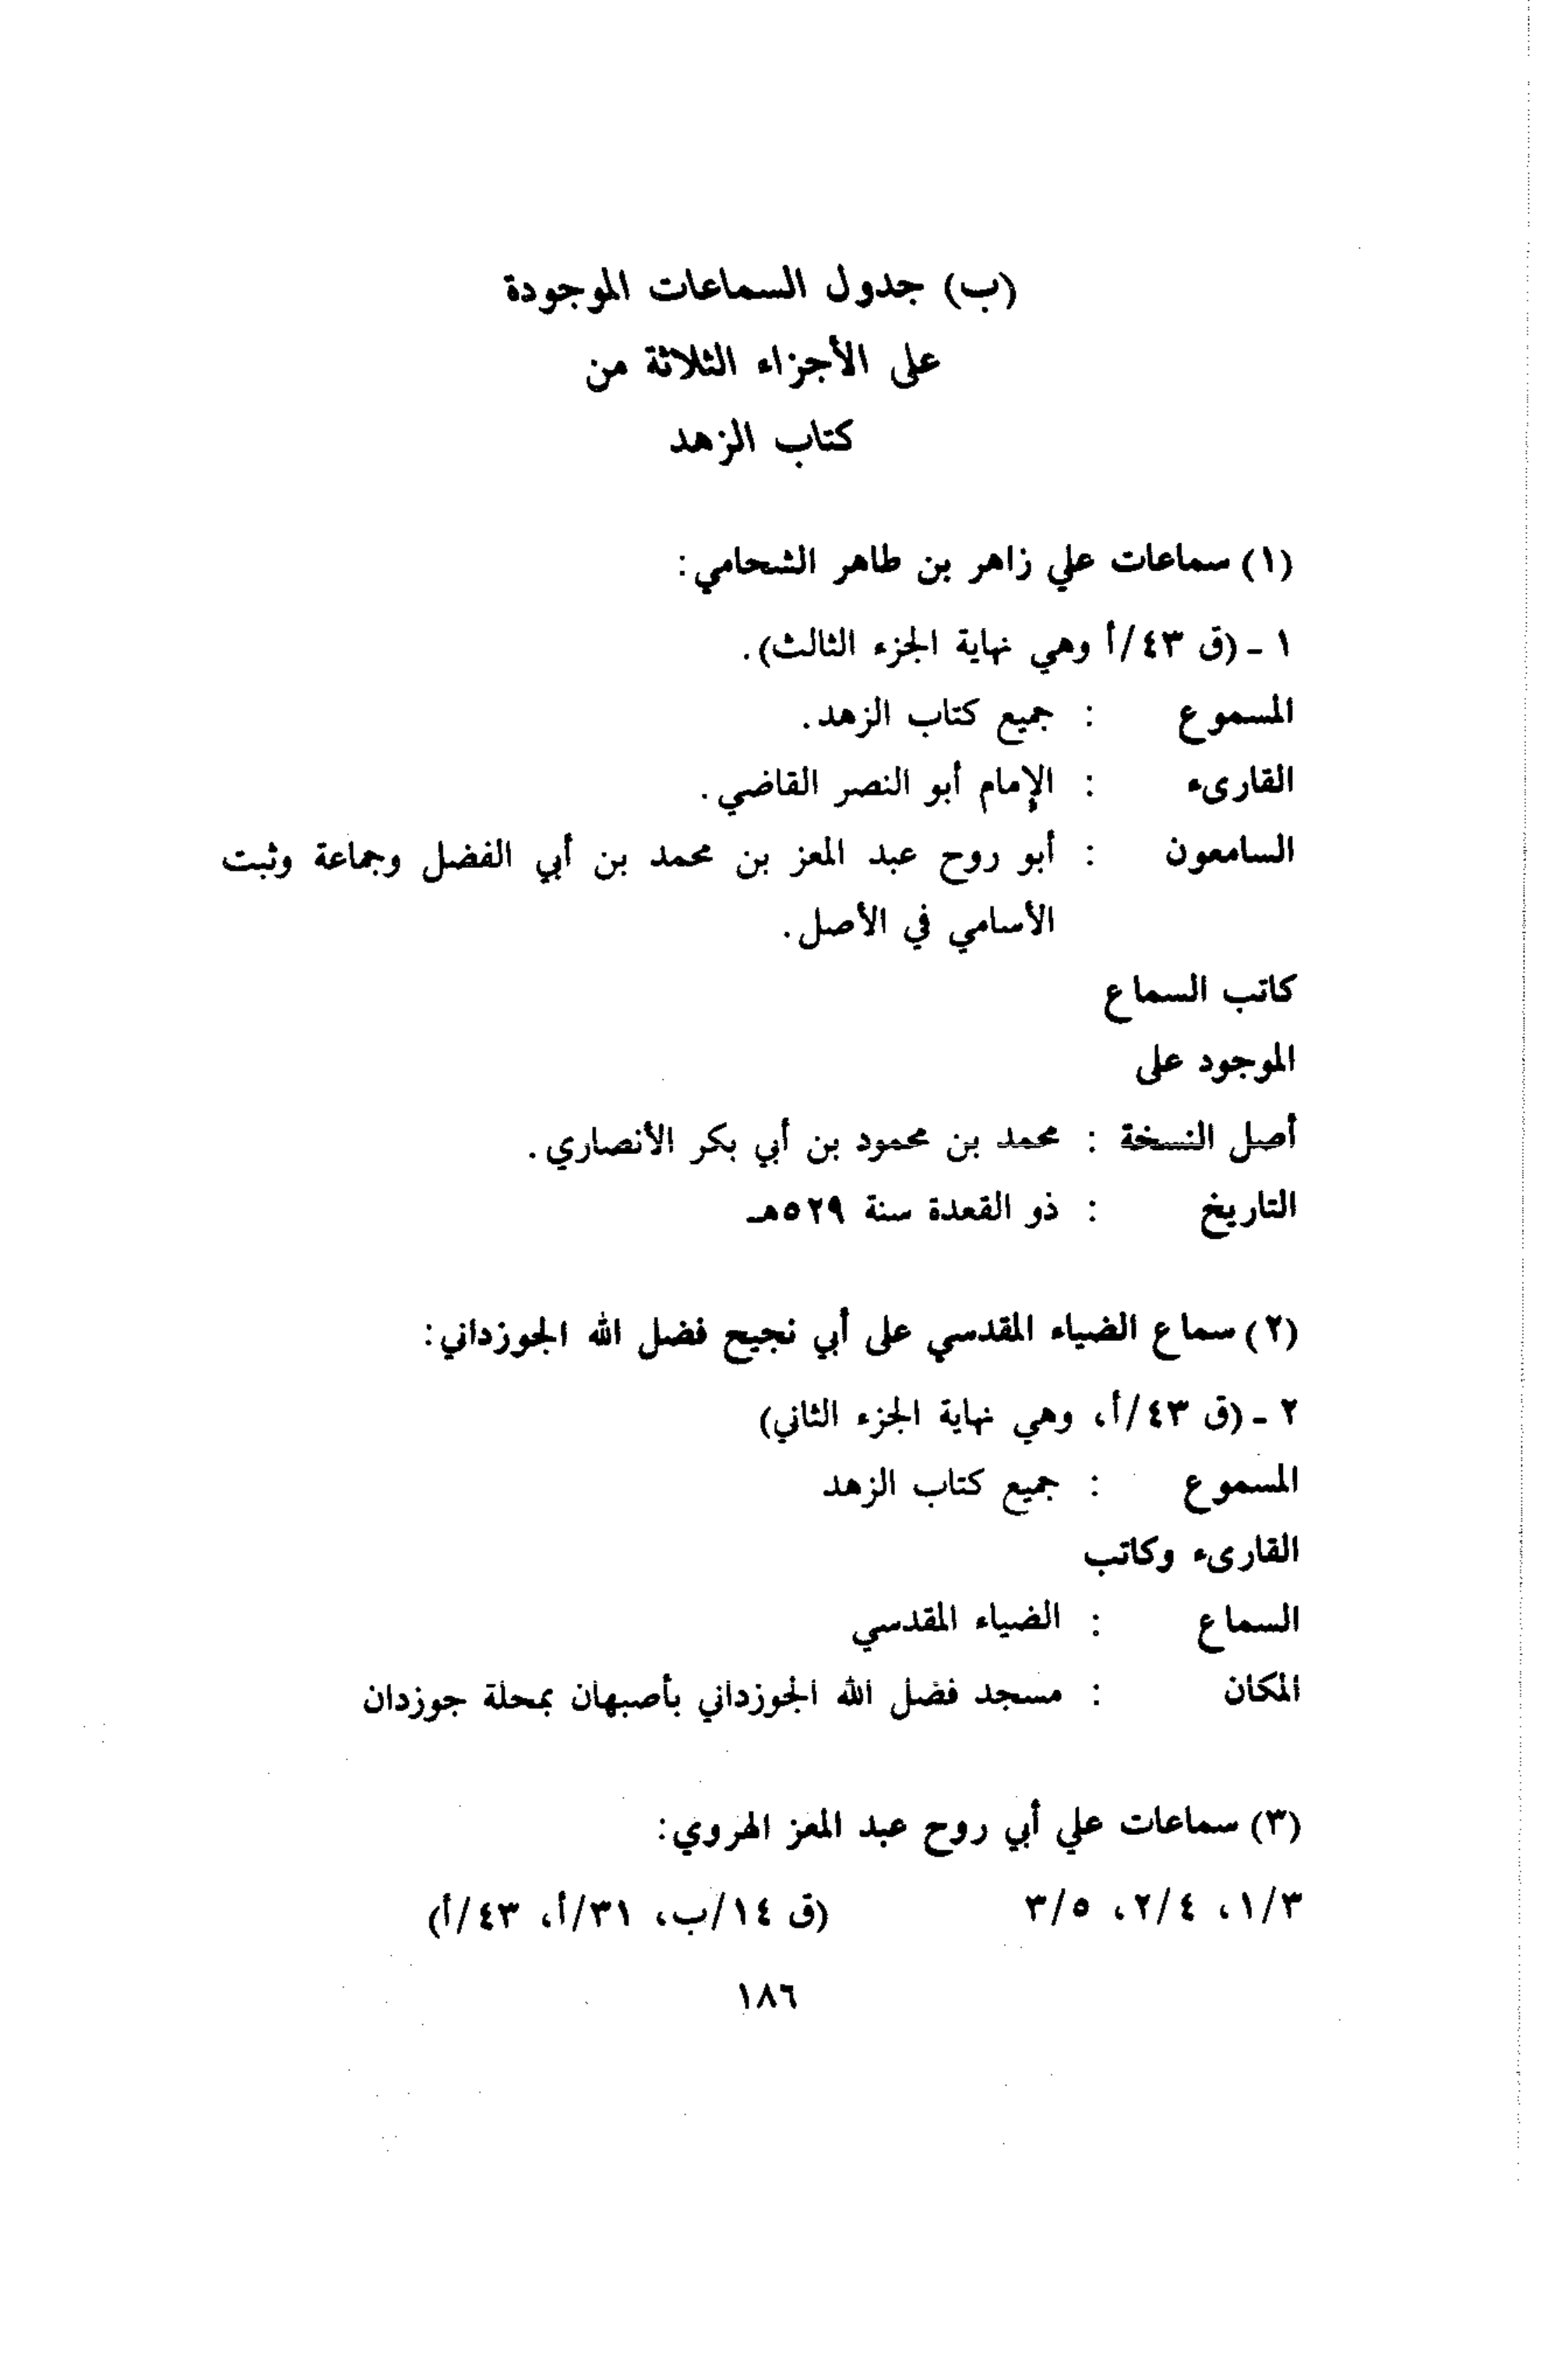 (ب) جدول السماعات الموجودة
على الأجزاء الثلاثة من
كتاب الزهد
(١) سماعات علي زاهر بن طاهر الشحامي:
١ - (ق ٤٣/أ وهي نهاية الجزء الثالث).
المسموع : جميع كتاب الزهد.
القارىء : الإمام أبو النصر القاضي.
السامعون : أبو روح عبد المعز بن محمد بن أبي الفضل وجماعة وثبت
الأسامي في الأصل.
كاتب السماع
الموجود على
أصل النسخة : محمد بن محمود بن أبي بكر الأنصاري.
التاريخ : ذو القعدة سنة ٥٢٩هـ
(٢) سماع الضياء المقدسي على أبي نجيح فضل الله الجوزداني:
٢ - (ق ٤٣/أ، وهي نهاية الجزء الثاني)
المسموع : جميع كتاب الزهد
القارىء وكاتب
السماع : الضياء المقدسي
المكان : مسجد فضل الله الجوزداني بأصبهان بمحلة جوزدان
(٣) سماعات علي أبي روح عبد المعز الهروي:
١/٣، ٢/٤، ٣/٥ (ق ١٤/ب، ٣١/أ، ٤٣/أ)
١٨٦